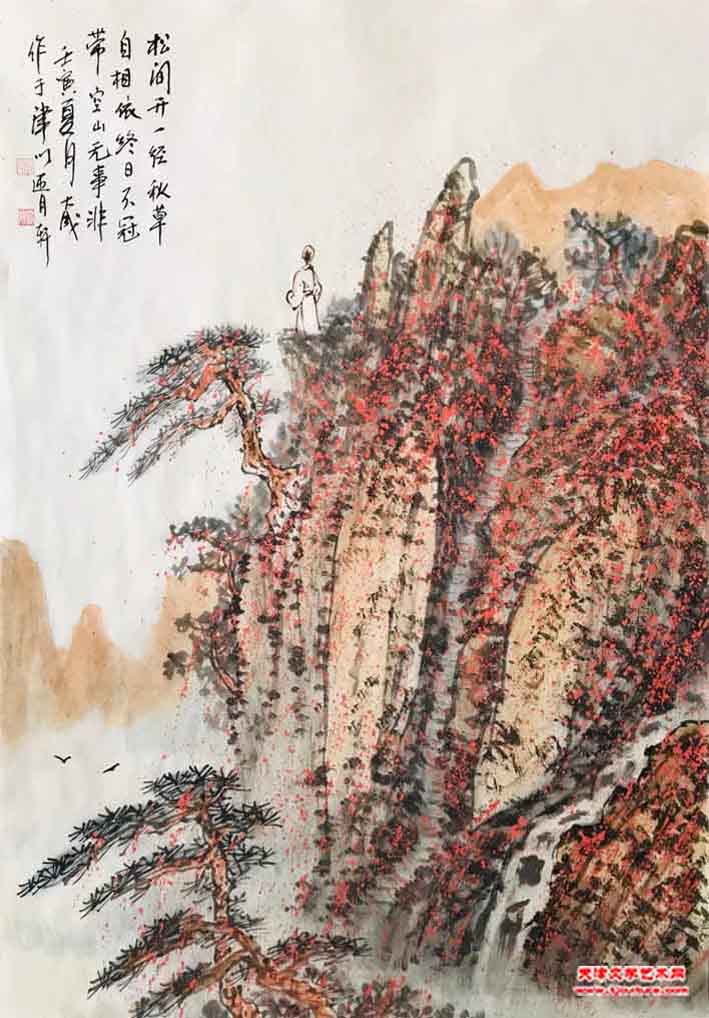 松间开一径秋草
自相依终日不冠
带空山无事非
壬寅夏月大成
作于津门
天津文学艺术网